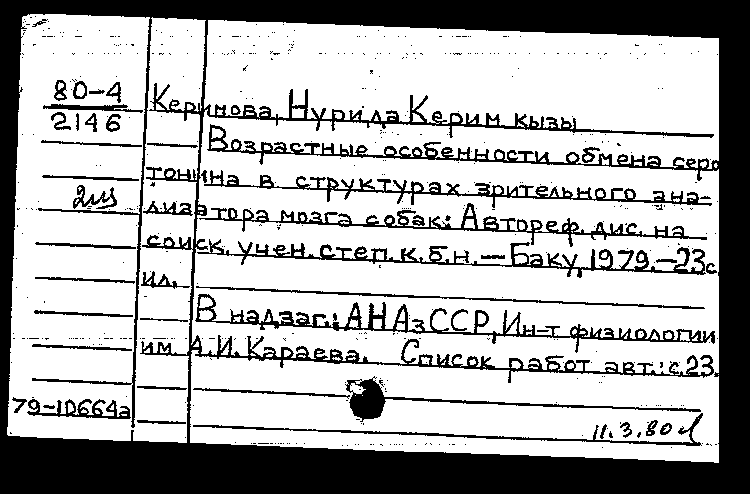 80-4
2146
2из
Керимова, Нурида Керим кызы
Возрастные особенности обмена серо
тонина в структурах зрительного ана-
лизатора мозга собак: Автореф. дис. на
соиск. учен. степ. к.б.н. — Баку, 1979. — 23с
ил.
В надзаг.: АНАзССР, Ин-т физиологии
им А.И. Караева. Список работ авт.: с.23.
79-10664а
11.3.80